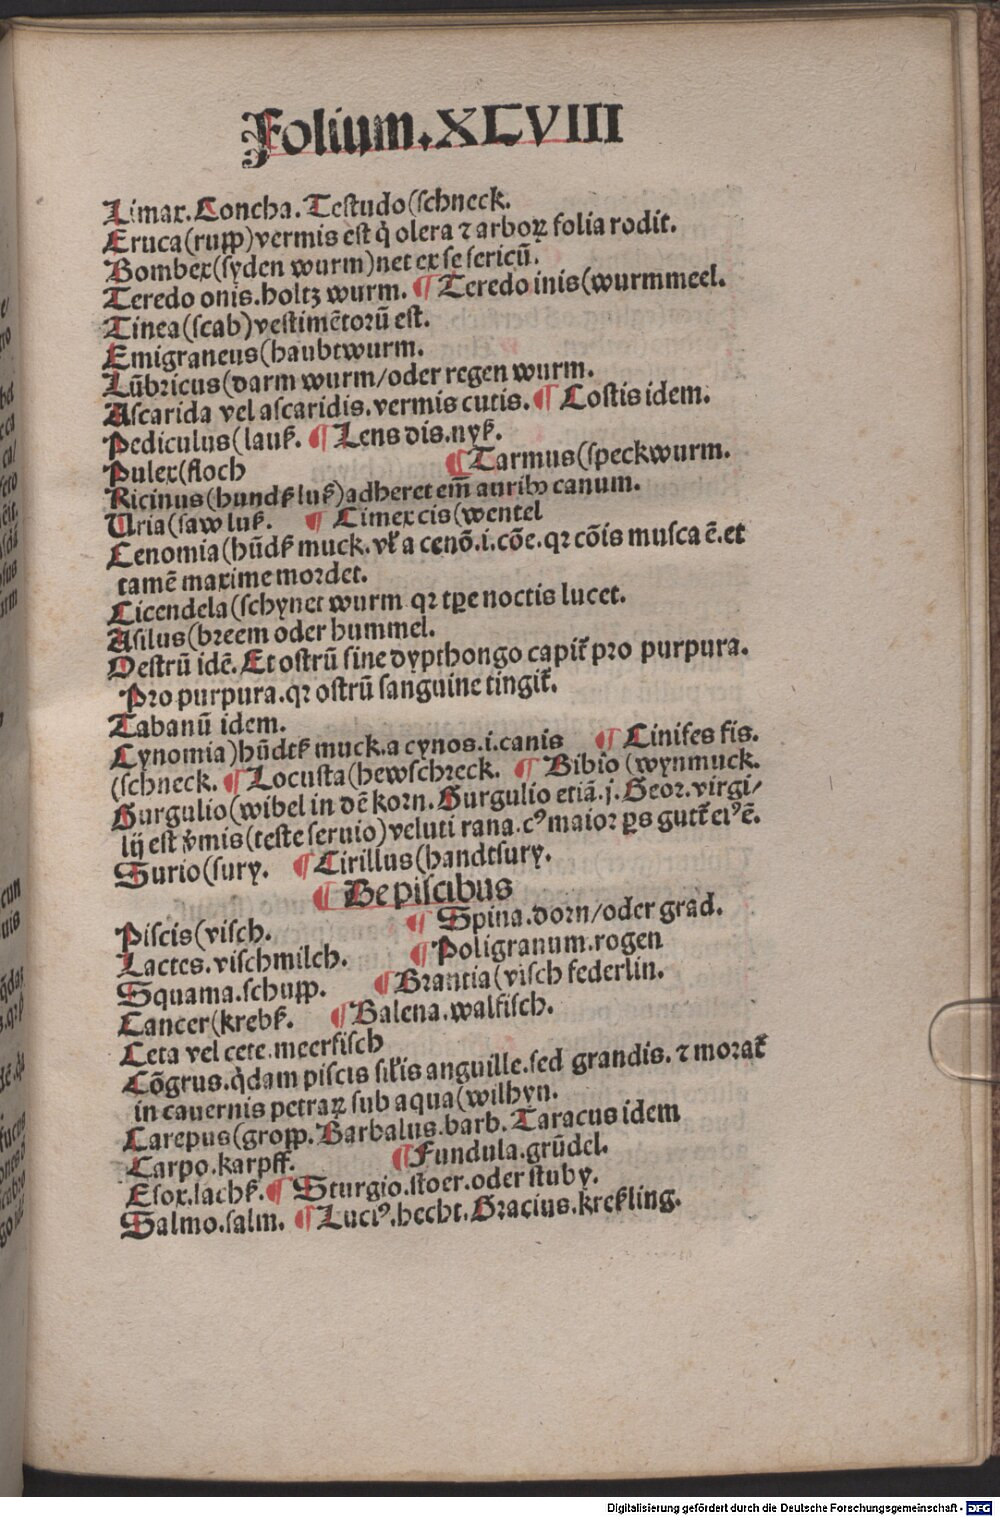 Folium.XLVIII
Limax.Concha.Testudo(schneck.
Eruca(rupp)vermis est q̇ olera ⁊ arboꝝ folia rodit.
Bombex(syden wurm)net ex se sericū.
Teredo onis.holtz wurm. ¶ Teredo inis(wurmmeel.
Tinea(scab)vestimētorū est.
Emigraneus(haubtwurm.
Lūbricus(darm wurm/oder regen wurm.
Ascarida vel ascaridis.vermis cutis. ¶ Costis idem.
Pediculus(lauſz. ¶ Lens dis.nyſz.
Pulex(floch ¶ Tarmus(speckwurm.
Ricinus(hundſz luſz)adheret em̄ auribꝰ canum.
Uria(saw luſz. ¶ Cimex cis(wentel
Cenomia(hūdſz muck.vƚ a cenō.i.cōe.qꝛ cōis musca ē.et
tamē maxime moꝛdet.
Cicendela(schynet wurm qꝛ tꝑe noctis lucet.
Asilus(bꝛeem oder hummel.
Oestrū idē. Et ostrū sine dypthongo capit̄ pꝛo purpura.
Pꝛo purpura.qꝛ ostrū sanguine tingit̄.
Tabanū idem.
Cynomia)hūdtſz muck.a cynos.i.canis ¶ Cinifes fis.
(schneck. ¶ Locusta(hewschꝛeck. ¶ Bibio(wynmuck.
Gurgulio(wibel in dē koꝛn.Gurgulio etiā.j.Geoꝛ.virgi/
lij est v̄mis(teste seruio)veluti rana.cꝰ maioꝛ ꝑs gutt̄ eiꝰ ē.
Surio(sury. ¶ Cirillus(handtsury.
¶ De piscibus
Piscis(visch. ¶ Spina.doꝛn/oder grad.
Lactes.vischmilch. ¶ Poligranum.rogen
Squama.schupp. ¶ Brantia(visch federlin.
Cancer(krebſz. ¶ Balena.walfisch.
Ceta vel cete.meerfisch
Cōgrus.q̇dam piscis sil̄is anguille.sed grandis. ⁊ moꝛat̄
in cauernis petraꝝ sub aqua(wilhyn.
Carepus(gropp.Barbalus.barb.Taracus idem
Carpo.karpff. ¶ Fundula.grūdel.
Esox.lachſz. ¶ Sturgio.stoer.oder stuby.
Salmo.salm. ¶ Luciꝰ.hecht.Gracius.kreſzling.
Digitalisierung gefördert durch die Deutsche Forschungsgemeinschaft - DFG